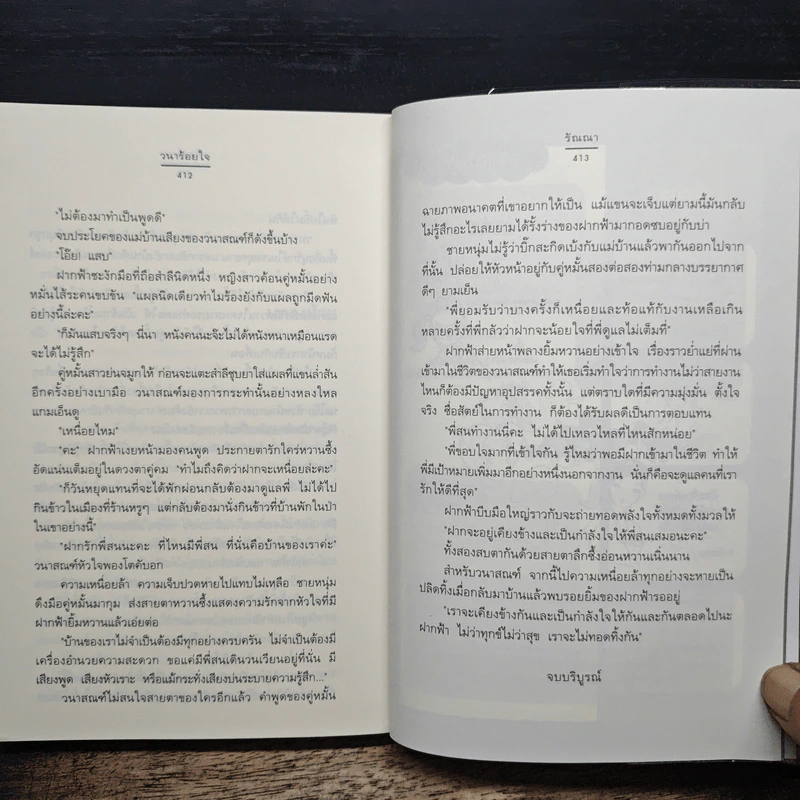 วนาร้อยใจ
412
"ไม่ต้องมาทำเป็นพูดดี"
จบประโยคของแม่บ้านเสียงของวนาสณฑ์ก็ดังขึ้นบ้าง
"โอ๊ย! แสบ"
ฝากฟ้าชะงักมือที่ถือสำลีนิดหนึ่ง หญิงสาวค้อนคู่หมั้นอย่าง
หมั่นไส้ระคนขบขัน "แผลนิดเดียวทำไมร้องยังกับแผลถูกมีดฟัน
อย่างนี้ล่ะคะ"
"ก็มันแสบจริงๆ นี่นา หนังคนนะจ๊ะไม่ได้หนังหนาเหมือนแรด
จะได้ไม่รู้สึก"
คู่หมั้นสาวย่นจมูกให้ ก่อนจะแตะสำลีชุบยาใส่แผลที่แขนล่ำสัน
อีกครั้งอย่างเบามือ วนาสณฑ์มองการกระทำนั้นอย่างหลงใหล
แกมเอ็นดู
"เหนื่อยไหม"
"คะ" ฝากฟ้าเงยหน้ามองคนพูด ประกายตารักใคร่หวานซึ้ง
อัดแน่นเต็มอยู่ในดวงตาคู่คม "ทำไมถึงคิดว่าฝากจะเหนื่อยล่ะคะ"
"ก็วันหยุดแทนที่จะได้พักผ่อนกลับต้องมาดูแลพี่ ไม่ได้ไป
กินข้าวในเมืองที่ร้านหรูๆ แต่กลับต้องมานั่งกินข้าวที่บ้านพักในป่า
ในเขาอย่างนี้"
"ฝากรักพี่สนนะคะ ที่ไหนมีพี่สน ที่นั่นคือบ้านของเราค่ะ"
วนาสณฑ์หัวใจพองโตคับอก
ความเหนื่อยล้า ความเจ็บปวดหายไปแทบไม่เหลือ ชายหนุ่ม
ดึงมือคู่หมั้นมากุม ส่งสายตาหวานซึ้งแสดงความรักจากหัวใจที่มี
ฝากฟ้ายิ้มหวานแล้วเอ่ยต่อ
"บ้านของเราไม่จำเป็นต้องมีทุกอย่างครบครัน ไม่จำเป็นต้องมี
เครื่องอำนวยความสะดวก ขอแค่มีพี่สนเดินวนเวียนอยู่ที่นั่น มี
เสียงพูด เสียงหัวเราะ หรือแม้กระทั่งเสียงบ่นระบายความรู้สึก..."
วนาสณฑ์ไม่สนใจสายตาของใครอีกแล้ว คำพูดของคู่หมั้น
รัณณา
413
ฉายภาพอนาคตที่เขาอยากให้เป็น แม้แขนจะเจ็บแต่ยามนี้มันกลับ
ไม่รู้สึกอะไรเลยยามได้รั้งร่างของฝากฟ้ามากอดซบอยู่กับบ่า
ชายหนุ่มไม่รู้ว่าบิ๊กสะกิดเบ้งกับแม่บ้านแล้วพากันออกไปจาก
ที่นั้น ปล่อยให้หัวหน้าอยู่กับคู่หมั้นสองต่อสองท่ามกลางบรรยากาศ
ดีๆ ยามเย็น
"พี่ยอมรับว่าบางครั้งก็เหนื่อยและท้อแท้กับงานเหลือเกิน
หลายครั้งที่พี่กลัวว่าฝากจะน้อยใจที่พี่ดูแลไม่เต็มที่"
ฝากฟ้าส่ายหน้าพลางยิ้มหวานอย่างเข้าใจ เรื่องราวย่ำแย่ที่ผ่าน
เข้ามาในชีวิตของวนาสณฑ์ทำให้เธอเริ่มทำใจว่าการทำงานไม่ว่าสายงาน
ไหนก็ต้องมีปัญหาอุปสรรคทั้งนั้น แต่ตราบใดที่มีความมุ่งมั่น ตั้งใจ
จริง ซื่อสัตย์ในการทำงาน ก็ต้องได้รับผลดีเป็นการตอบแทน
"พี่สนทำงานนี่คะ ไม่ได้ไปเหลวไหลที่ไหนสักหน่อย"
"พี่ขอบใจมากที่เข้าใจกัน รู้ไหมว่าพอมีฝากเข้ามาในชีวิต ทำให้
พี่มีเป้าหมายเพิ่มมาอีกอย่างหนึ่งนอกจากงาน นั่นก็คือจะดูแลคนที่เรา
รักให้ดีที่สุด"
ฝากฟ้าบีบมือใหญ่ราวกับจะถ่ายทอดพลังใจทั้งหมดทั้งมวลให้
"ฝากจะอยู่เคียงข้างและเป็นกำลังใจให้พี่สนเสมอนะคะ"
ทั้งสองสบตากันด้วยสายตาลึกซึ้งอ่อนหวานเนิ่นนาน
สำหรับวนาสณฑ์ จากนี้ไปความเหนื่อยล้าทุกอย่างจะหายเป็น
ปลิดทิ้งเมื่อกลับมาบ้านแล้วพบรอยยิ้มของฝากฟ้ารออยู่
"เราจะเคียงข้างกันและเป็นกำลังใจให้กันและกันตลอดไปนะ
ฝากฟ้า ไม่ว่าทุกข์ไม่ว่าสุข เราจะไม่ทอดทิ้งกัน"
จบบริบูรณ์